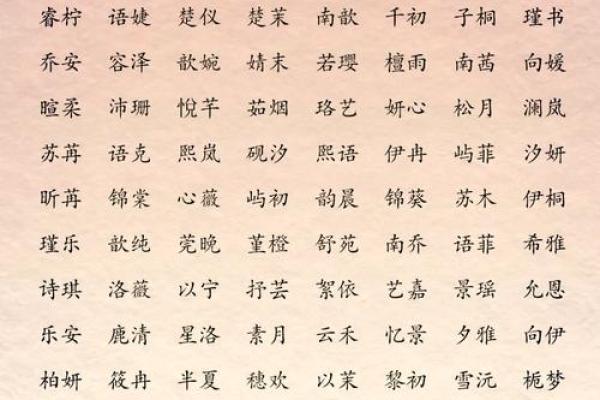 睿柠 语婕 楚仪 楚茉 南歆 千初 子桐 瑾书
乔安 容泽 歆婉 婧末 若璎 檀雨 南茜 向媛
暄柔 沛珊 悅芊 茹烟 珞艺 妍心 松月 澜岚
苏苒 语克 熙岚 砚汐 熙语 伊冉 屿菲 汐妍
昕苒 锦棠 心薇 屿初 韵晨 锦葵 苏木 伊桐
瑾乐 歆纯 莞晚 堇橙 舒苑 南乔 语菲 希雅
诗琪 洛薇 以宁 抒芸 絮依 艺嘉 景瑶 允恩
乐安 鹿清 星洛 素月 云禾 忆景 夕雅 向伊
柏妍 筱冉 半夏 穗欢 以茉 黎初 雪沅 栀梦